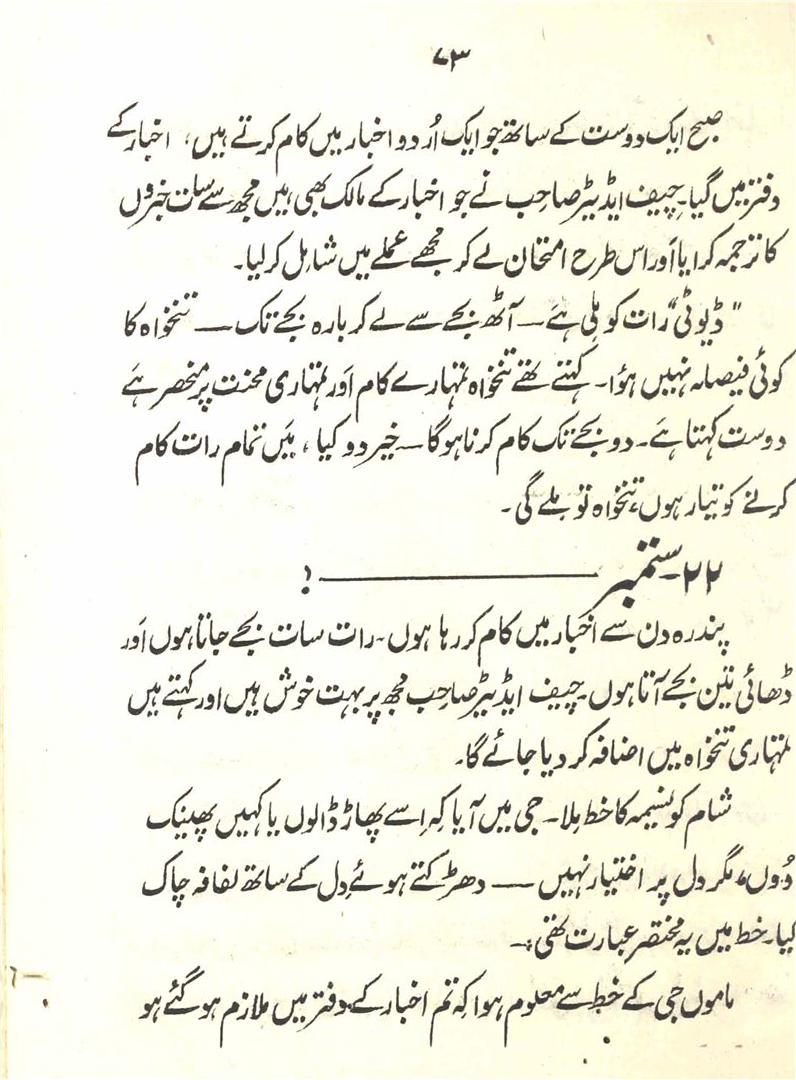 ۷۳
صبح ایک دوست کے ساتھ جو ایک اُردو اخبار میں کام کرتے ہیں، اخبار کے
دفتر میں گیا۔ چیف ایڈیٹر صاحب نے جو اخبار کے مالک بھی ہیں مجھ سے سات خبروں
کا ترجمہ کرایا اَور اس طرح امتحان لے کر مجھے عملے میں شامل کر لیا۔
"ڈیوٹی" رات کو مِلی ہے — آٹھ بجے سے لے کر بارہ بجے تک — تنخواہ کا
کوئی فیصلہ نہیں ہوا۔ کہتے تھے تنخواہ تمہارے کام اَور تمہاری محنت پر منحصر ہَے
دوست کہتا ہَے۔ دو بجے تک کام کرنا ہوگا — خیر دو کیا، مَیں تمام رات کام
کرنے کو تیار ہوں، تنخواہ تو مِلے گی۔
۲۲۔ ستمبر ———— !
پندرہ دن سے اخبار میں کام کر رہا ہوں۔ رات سات بجے جاتا ہوں اَور
ڈھائی تین بجے آتا ہوں۔ چیف ایڈیٹر صاحب مجھ پر بہت خوش ہیں اور کہتے ہیں
تمہاری تنخواہ میں اضافہ کر دیا جائے گا۔
شام کو نسیمہ کا خط مِلا۔ جی میں آیا کہ اِسے پھاڑ ڈالوں یا کہیں پھینک
دُوں، مگر دل پر اختیار نہیں — دھڑکتے ہوئے دِل کے ساتھ لفافہ چاک
کیا۔ خط میں یہ مختصر عبارت تھی:۔
ماموں جی کے خط سے معلوم ہوا کہ تم اخبار کے دفتر میں ملازم ہو گئے ہو